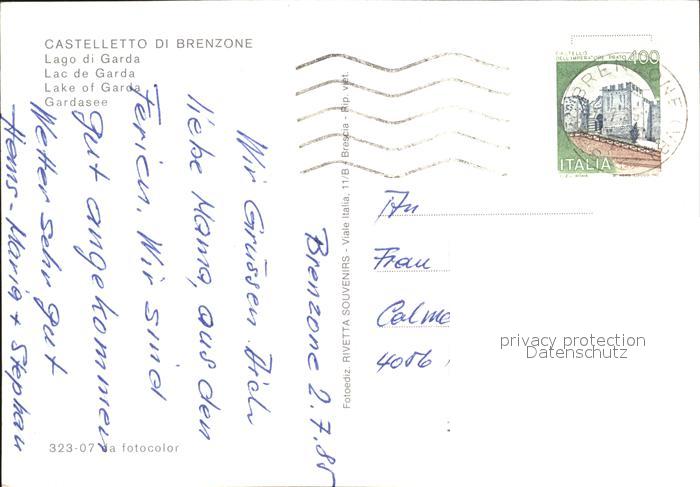 CASTELLETTO DI BRENZONE
Lago di Garda
Lac de Garda
Lake of Garda
Gardasee
Brenzone 2.7.85
Wir Grüssen Dich
liebe Mama, aus den
Ferien. Wir sind
gut angekommen
Wetter sehr gut
Hans-Maria + Stephan
323-07 da fotocolor
Fotoediz. RIVETTA SOUVENIRS - Viale Italia, 11/B - Brescia - Rip. viet.
CASTELLO
DELL'IMPERATORE PRATO 400
ITALIA
BRENZONE (VR)
An
Frau
4056
privacy protection
Datenschutz